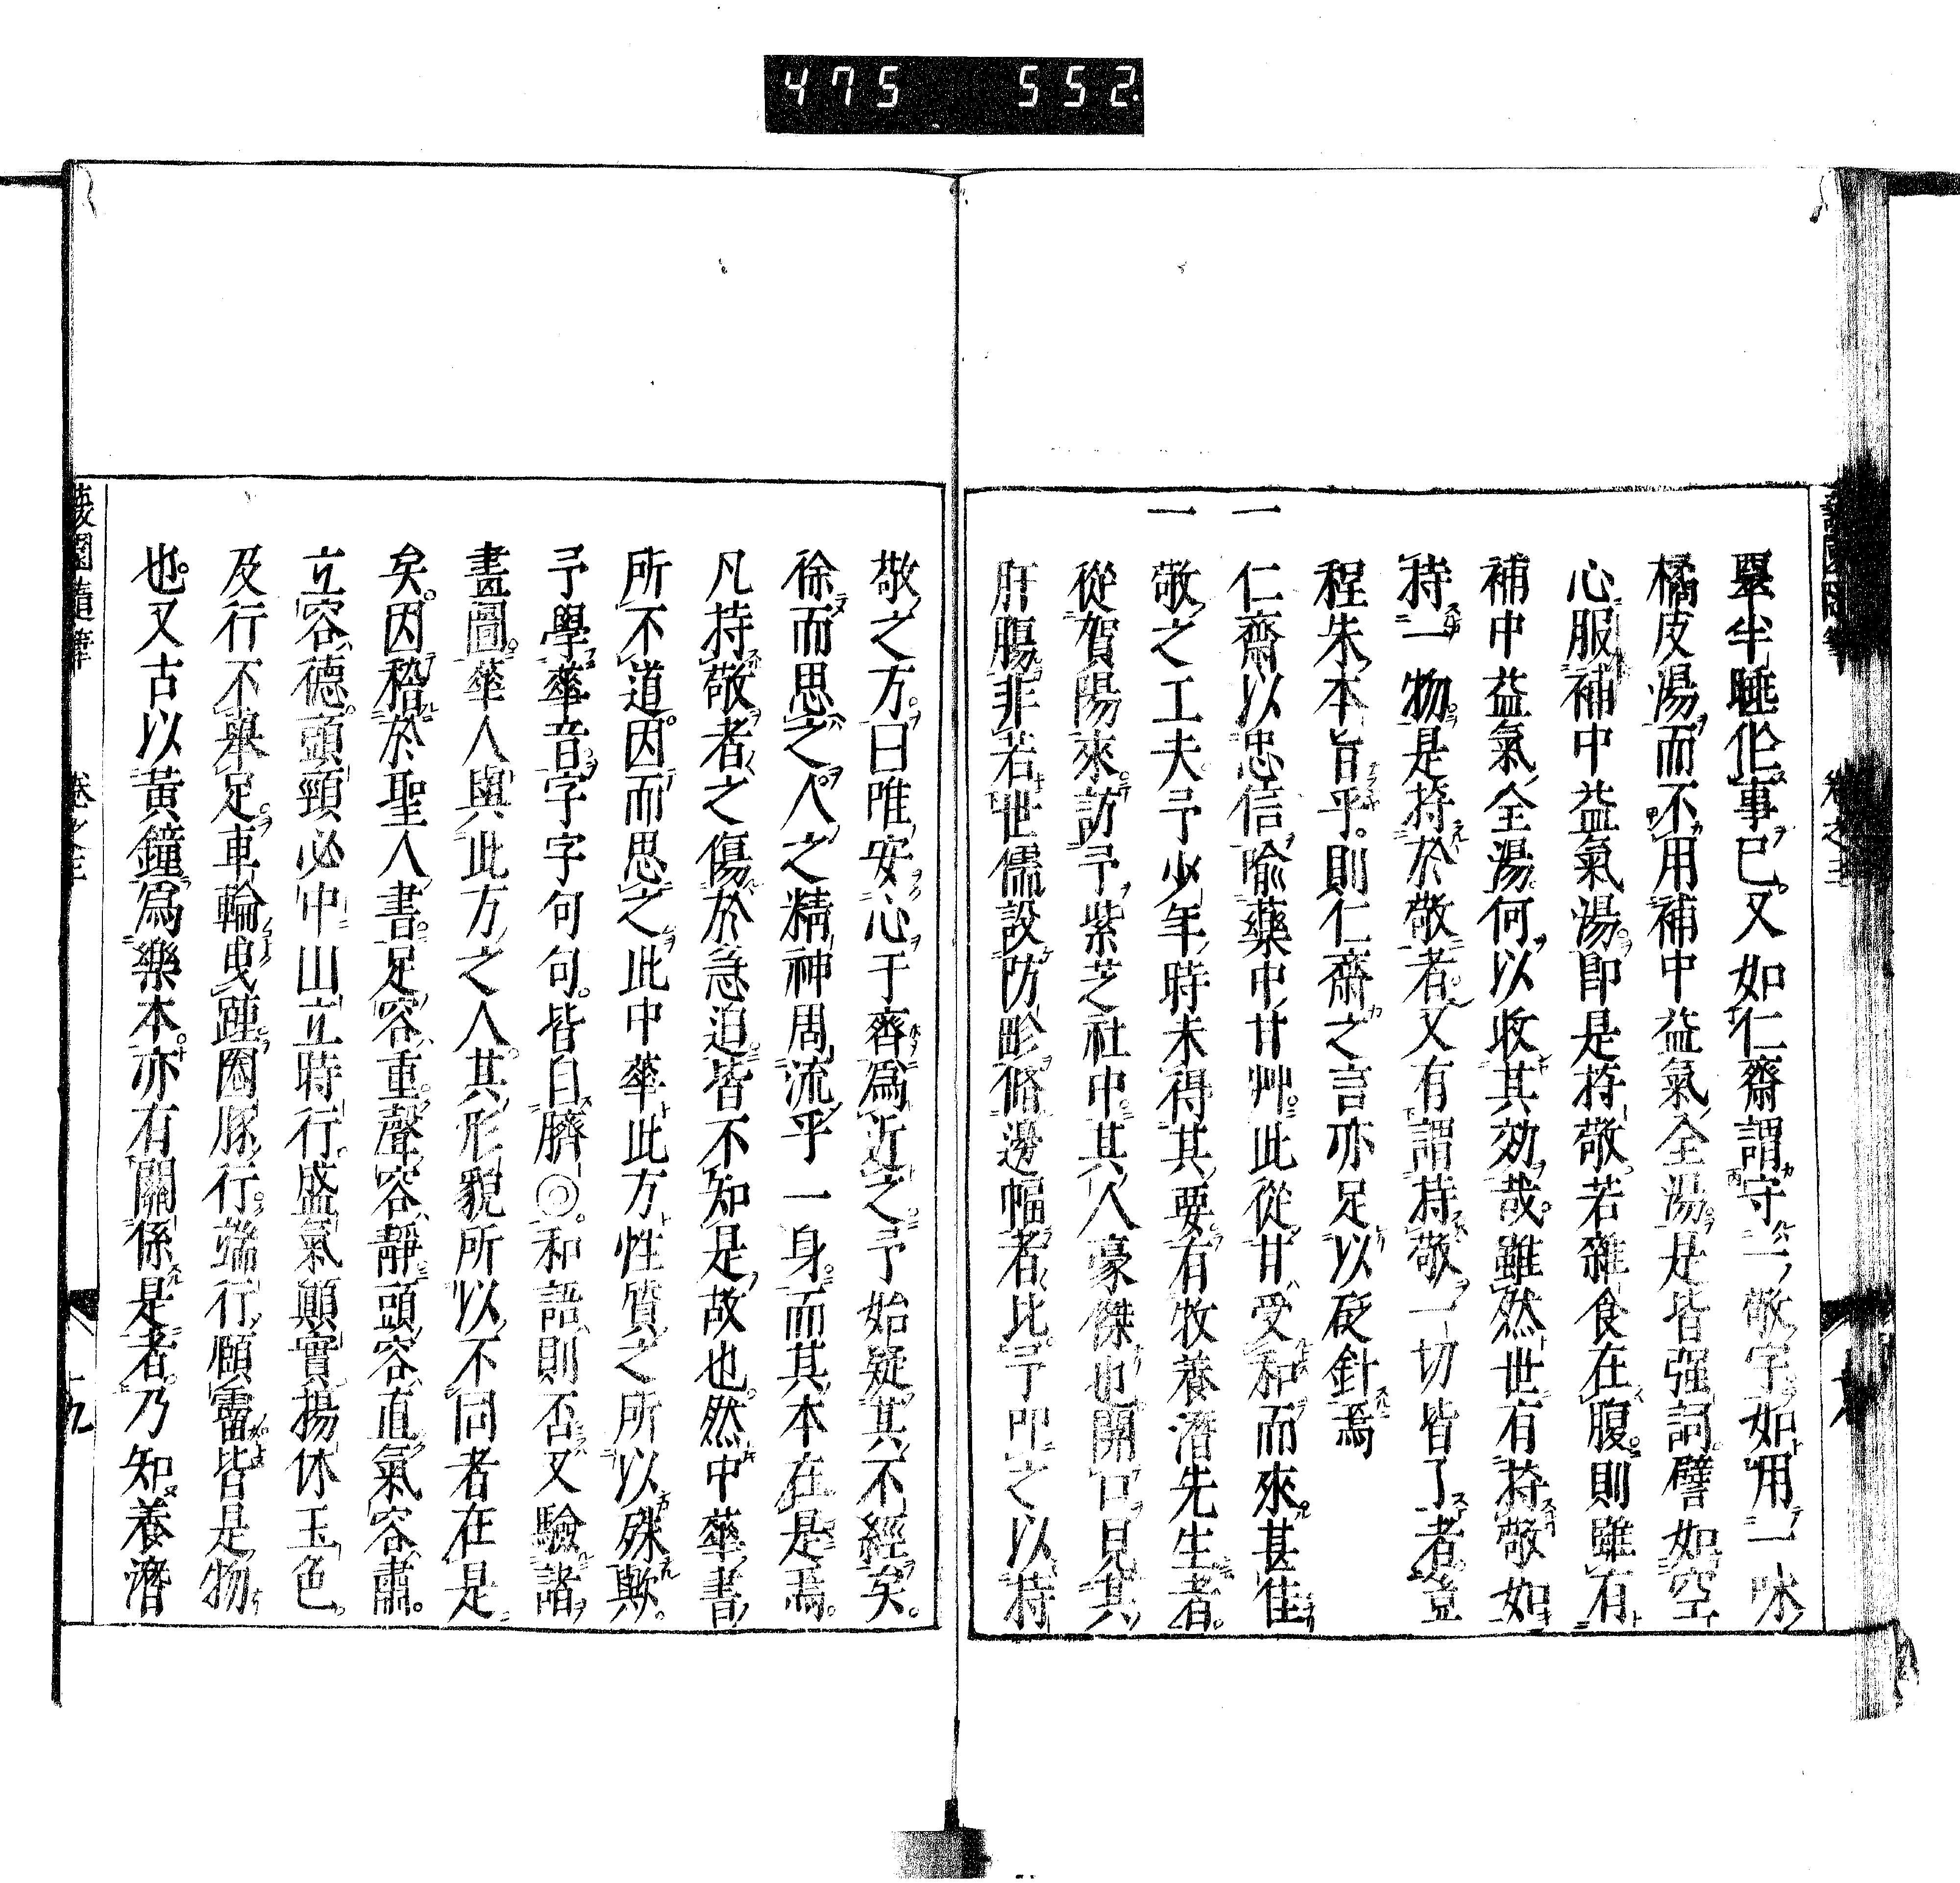 475 552
蘐園隨筆 卷之三
畢半睡伦事已。又如仁齋謂守一敬字如用一味
橘皮湯而不用補中益氣全湯是皆强詞。譬如空
心服補中益氣湯即是持敬若雜食在腹則雖有
補中益氣全湯何以收其効哉雖然世有持敬如
持一物是持於敬者又有謂持敬一切皆了者豈
程朱本旨乎。則仁齋之言亦足以砭針焉
一 仁齋以忠信喻藥中甘艸此從甘受和而來。甚佳
一 敬之工夫予少年時未得其要有牧養濳先生者。
從賀陽來訪予紫芝社中其人豪傑也開口見其
肝膓非若世儒設防畛脩邊幅者比予叩之以持
敬之方。曰唯安心于齊爲近之予始疑其不經矣。
徐而思之。人之精神周流乎一身而其本在是焉。
凡持敬者之傷於急迫皆不知是故也。然中華書
所不道。因而思之此中華此方性質之所以殊歟。
予學華音字字句句。皆自臍◎。和語則否又驗諸
畫圖。華人與此方之人。其形貌所以不同者在是
矣。因稽於聖人書。足容重。聲容靜頭容直氣容肅。
立容德。頭頸必中山立時行。盛氣顚實揚休玉色。
及行不舉足。車輪曳踵圈豚行。端行頤霤皆是物
也。又古以黃鐘爲樂本。亦有關係是者。乃知養濳
蘐園隨筆 卷之三 十九